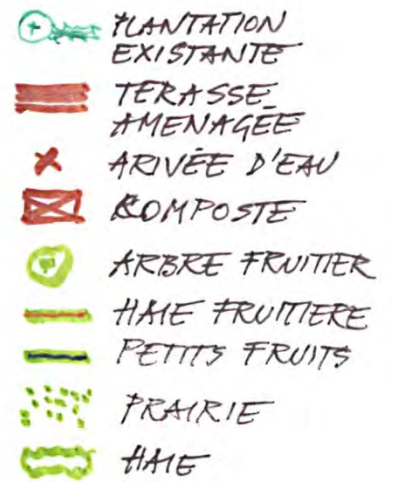 PLANTATION
EXISTANTE
TERASSE
AMENAGÉE
ARIVÉE D'EAU
COMPOSTE
ARBRE FRUITIER
HAIE FRUITIERE
PETITS FRUITS
PRAIRIE
HAIE